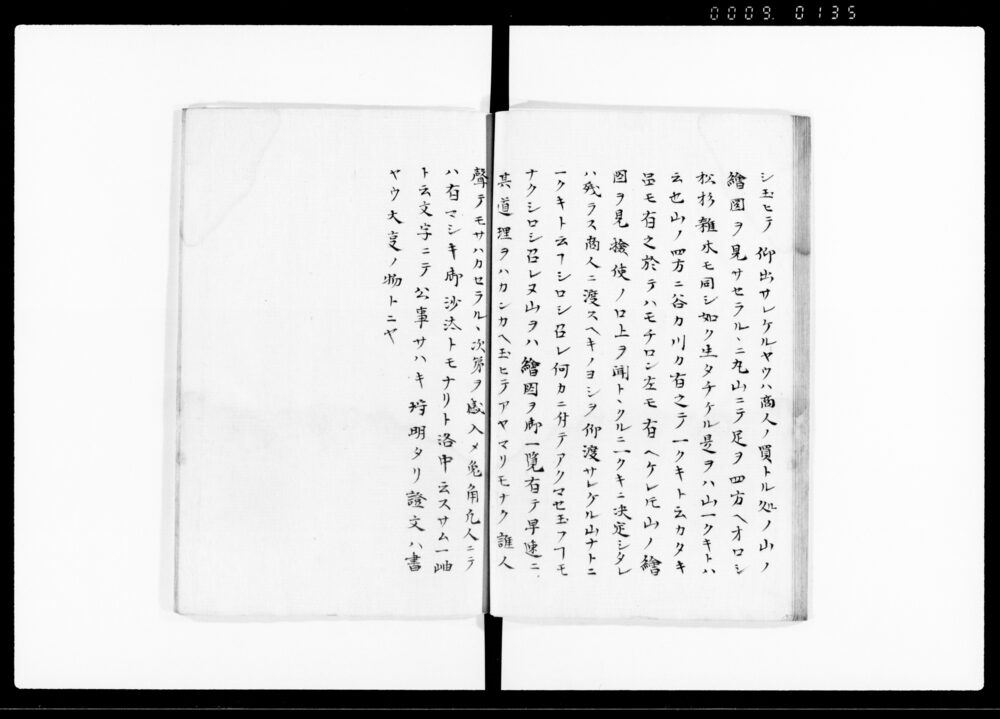 0009. 0135
シ玉ヒテ 仰出サレケルヤウハ商人ノ買トル処ノ山ノ
繪圖ヲ見サセラル、ニ丸山ニテ足ヲ四方ヘオロシ
松杉雜木モ同シ如ク生タチケル是ヲハ山一クキトハ
云也山ノ四方ニ谷カ川カ有之テ一クキト云カタキ
㕝モ有之於テハモチロン左モ有ヘケレ𪜈山ノ繪
圖ヲ見檢使ノ口上ヲ聞ト、クルニ一クキニ决定シタレ
ハ殘ラス商人ニ渡スヘキノヨシヲ仰渡サレケル山ナトニ
一クキト云ヿシロシ召レ何カニ付テアクマセ玉フヿモ
ナクシロシ召レ又山ヲハ繪圖ヲ御一覧有テ早速ニ
其道理ヲハカンカヘ玉ヒテアヤマリモナク誰人
聲テモサハカセラル、次第ヲ感入メ兎角凡人ニテ
ハ有マシキ御沙汰トモナリト洛中云スサム一岫
ト云文字ニテ公事サハキ埒明タリ證文ハ書
ヤウ大㕝ノ物トニヤ